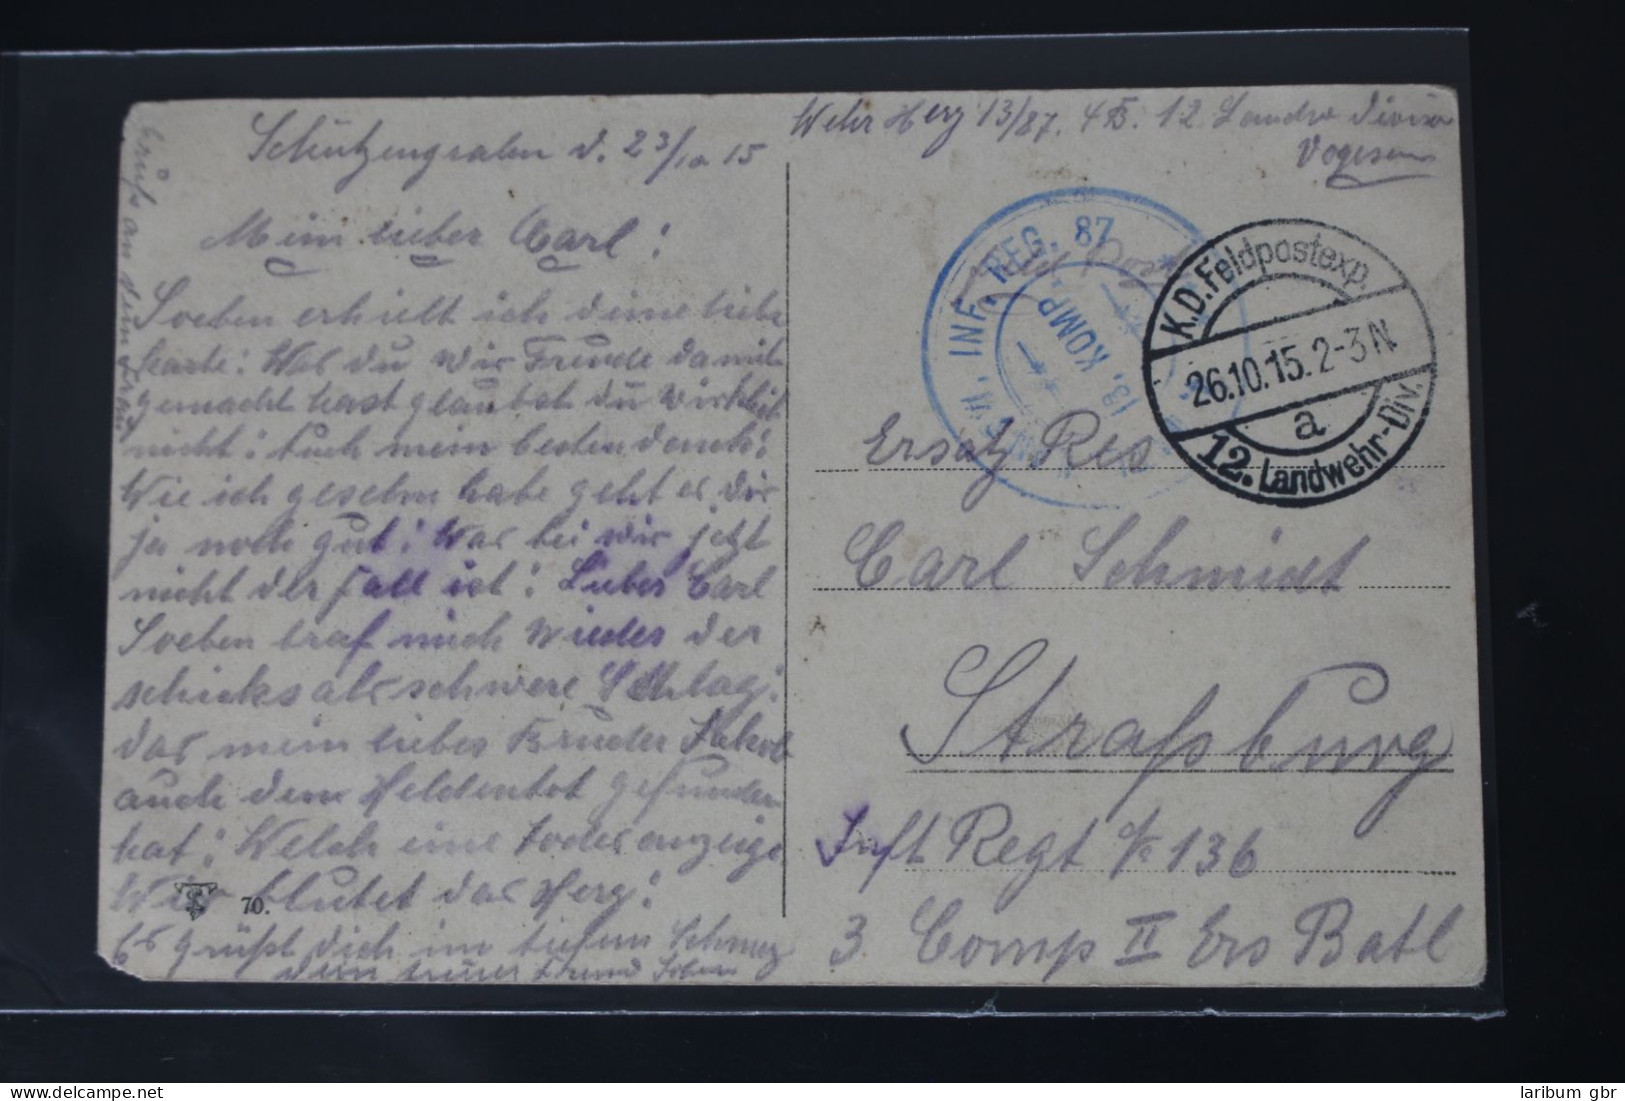 Schützengraben d. 23/10 15
Mein lieber Carl!
Soeben erhielt ich deine liebe
Karte: Was du wir Freude damit
gemacht hast glaubst du wirklich
nicht: Auch mein besten dank:
Wie ich gesehn habe geht es dir
ja noch gut: Was bei wir jetzt
nicht der fall ist: Lieber Carl
Soeben traf mich wieder der
schicksals schwere Schlag:
das mein lieber Bruder Jakob
auch den Heldentot gefunden
hat: Welch eine todesanzeige
Wir blutet das Herz:
70.
Es grüßt dich im tiefem Schmerz
dein treuer Freund
Grüße an
Wehr Herz 13/87. 4 B. 12 Landw Divisio
Vogesen
INF. REG. 87
13. KOMP.
K.D.Feldpostexp.
26.10.15. 2-3 N
a
12. Landwehr-Div.
Ersatz Res
Carl Schmidt
Straßburg
Inft Regt № 136
3. Comp II Ers Batl
laribum gbr
www.delcampe.net